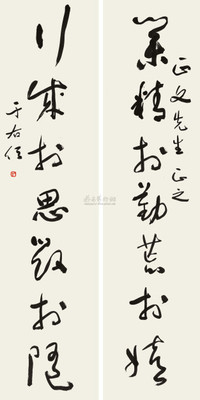 正文先生正之
業精於勤荒於嬉
行成於思毀於隨
于右任